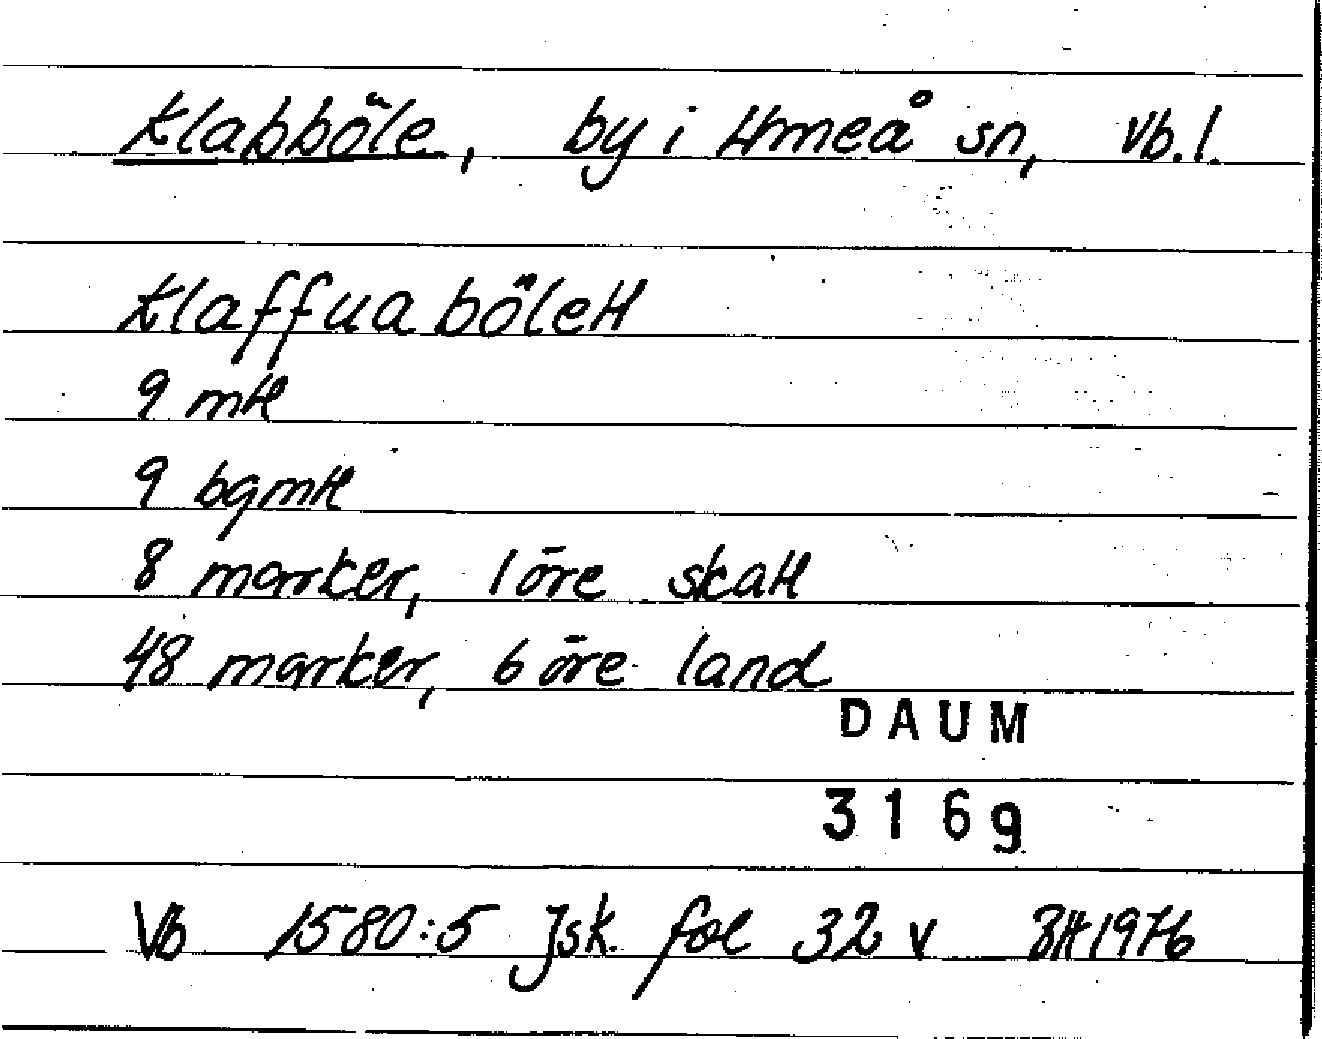 Klabböle, by i Umeå sn, Vb.l.
Klaffua bölett
9 mtl
9 bgmtl
8 marker, 1 öre skatt
48 marker, 6 öre land
DAUM
3169
Vb 1580:5 Jsk. fol 32 v 1976